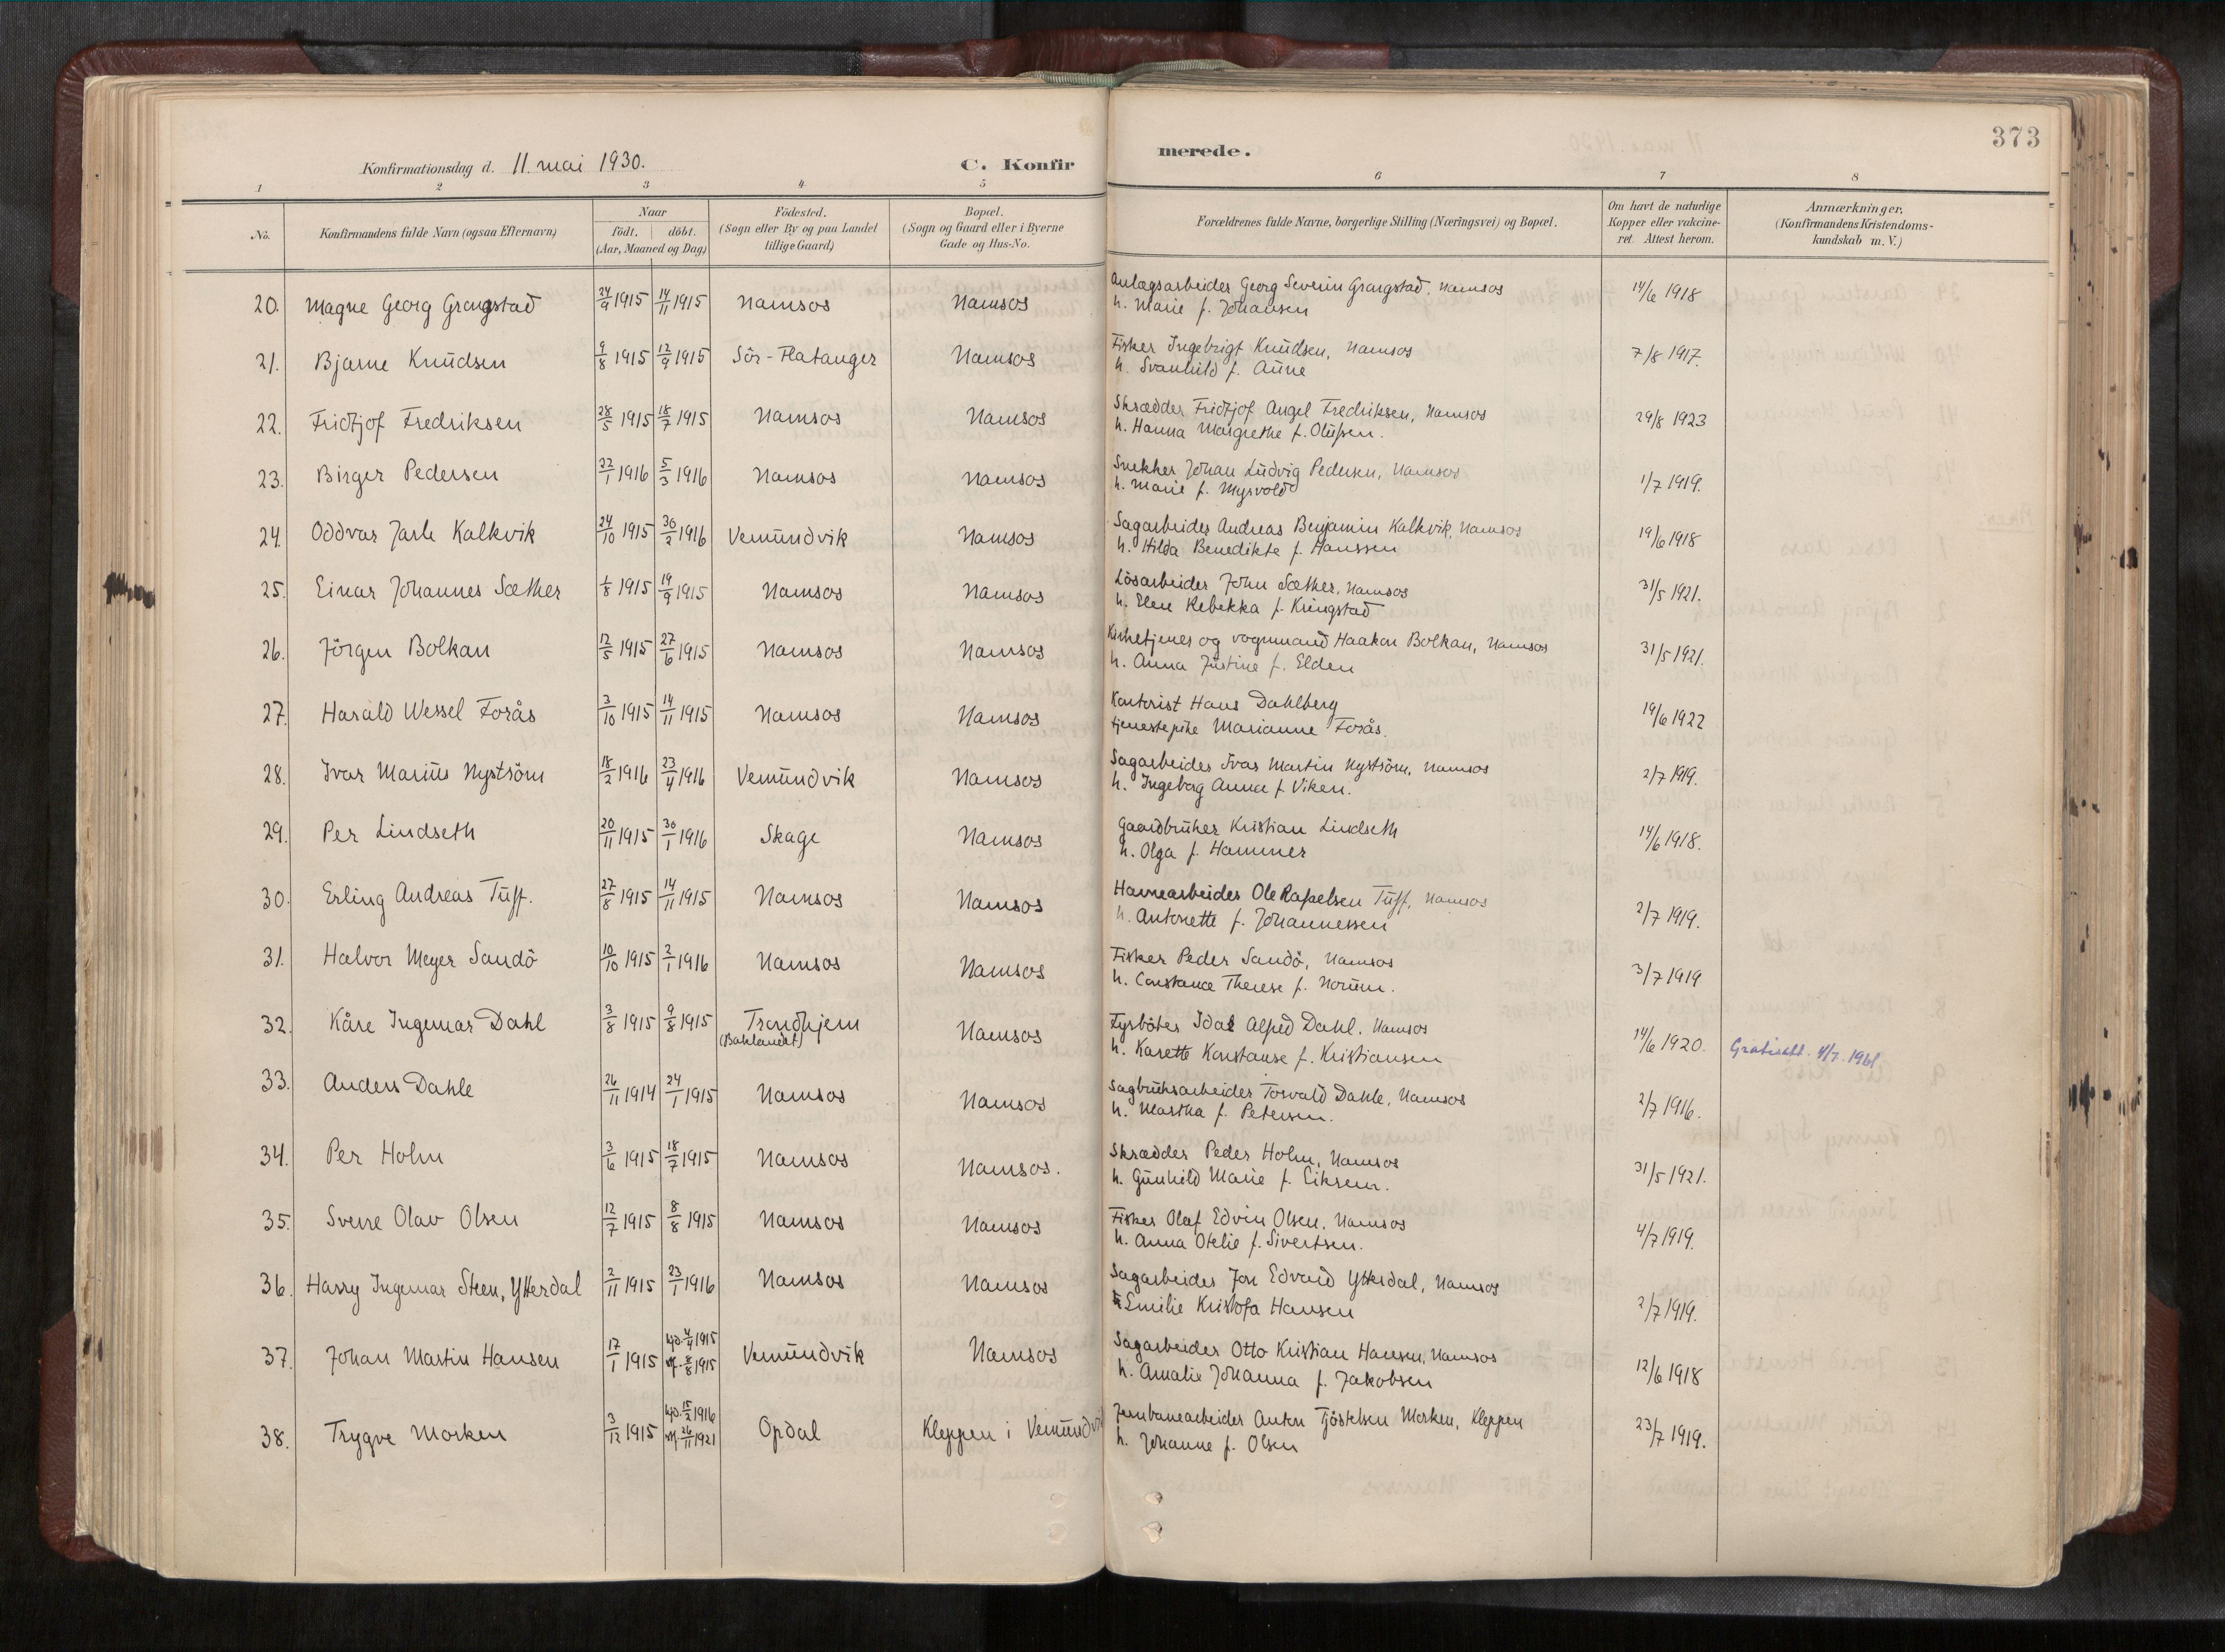 373
Konfirmationsdag d. 11. mai 1930.
C. Konfirmerede.
1 2 3 4 5 6 7 8
No.
Konfirmandens fulde Navn (ogsaa Efternavn)
Naar
födt. döbt.
(Aar, Maaned og Dag)
Födested.
(Sogn eller By og paa Landet
tillige Gaard)
Bopæl.
(Sogn og Gaard eller i Byerne
Gade og Hus-No.
Forældrenes fulde Navne, borgerlige Stilling (Næringsvei) og Bopæl.
Om havt de naturlige
Kopper eller vakcine-
ret. Attest herom.
Anmærkninger.
(Konfirmandens Kristendoms-
kundskab m. V.)
20. Magne Georg Grongstad 24/9 1915 14/11 1915 Namsos Namsos Anlægsarbeider Georg Severin Grongstad, Namsos 14/6 1918
h. Marie f. Johansen
21. Bjarne Knudsen 9/8 1915 12/9 1915 Sör-Flatanger Namsos Fisker Ingebrigt Knudsen, Namsos 7/8 1917.
h. Svanhild f. Aune
22. Fridtjof Fredriksen 28/5 1915 18/7 1915 Namsos Namsos Skrædder Fridtjof Angel Fredriksen, Namsos 29/8 1923
h. Hanna Margrethe f. Olufsen.
23. Birger Pedersen 22/1 1916 5/3 1916 Namsos Namsos Snekker Johan Ludvig Pedersen, Namsos 1/7 1919.
h. Marie f. Myrvold
24. Oddvar Jarle Kalkvik 24/10 1915 30/2 1916 Vemundvik Namsos Sagarbeider Andreas Benjamin Kalkvik, Namsos 19/6 1918
h. Hilda Benedikte f. Hanssen
25. Einar Johannes Sæther 1/8 1915 19/9 1915 Namsos Namsos Lösarbeider John Sæther, Namsos 31/5 1921.
h. Elen Rebekka f. Kringstad
26. Jörgen Bolkan 12/5 1915 27/6 1915 Namsos Namsos Kirketjener og vognmand Haakon Bolkan, Namsos 31/5 1921.
h. Anna Justine f. Elden
27. Harald Wessel Forås 3/10 1915 14/11 1915 Namsos Namsos Kontorist Hans Dahlberg 19/6 1922
tjenestepike Marianne Forås.
28. Ivar Marius Nyström 18/2 1916 23/4 1916 Vemundvik Namsos Sagarbeider Ivar Martin Nyström, Namsos 2/7 1919.
h. Ingeborg Anna f. Viken.
29. Per Lindseth 20/11 1915 30/1 1916 Skage Namsos Gaardbruker Kristian Lindseth 14/6 1918.
h. Olga f. Hammer
30. Erling Andreas Tuff. 27/8 1915 14/11 1915 Namsos Namsos Havnearbeider Ole Rafaelsen Tuff, Namsos 2/7 1919.
h. Antonette f. Johannessen
31. Halvor Meyer Sandö 10/10 1915 2/1 1916 Namsos Namsos Fisker Peder Sandö, Namsos 3/7 1919
h. Constance Therese f. Norum.
32. Kåre Ingemar Dahl 3/8 1915 9/8 1915 Trondhjem Namsos Fyrböter Idar Alfred Dahl. Namsos 14/6 1920. 4/7. 1961
(Baklandet) h. Karette Konstanse f. Kristiansen
33. Anders Dahle 26/11 1914 24/1 1915 Namsos Namsos Sagbruksarbeider Torvald Dahle, Namsos 2/7 1916.
h. Martha f. Petersen.
34. Per Holm 3/6 1915 18/7 1915 Namsos Namsos. Skrædder Peder Holm, Namsos 31/5 1921.
h. Gunhild Marie f. Eiksem.
35. Sverre Olav Olsen 12/7 1915 8/8 1915 Namsos Namsos Fisker Olaf Edvin Olsen, Namsos 4/7 1919.
h. Anna Otelie f. Sivertsen.
36. Harry Ingemar Steen, Ytterdal 2/11 1915 23/1 1916 Namsos Namsos Sagarbeider Jon Edvard Ytterdal, Namsos 2/7 1919.
Emilie Kristofa Hansen
37. Johan Martin Hansen 17/1 1915 hjd. 4/4 1915 Vemundvik Namsos Sagarbeider Otto Kristian Hansen, Namsos 12/6 1918
8/8 1915 h. Amalie Johanna f. Jakobsen
38. Trygve Morken 3/12 1915 hjd. 15/2 1916 Opdal Kleppen i Vemundvik Jernbanearbeider Anton Tjöstelsen Morken, Kleppen 23/7 1919.
26/11 1921 h. Johanne f. Olsen